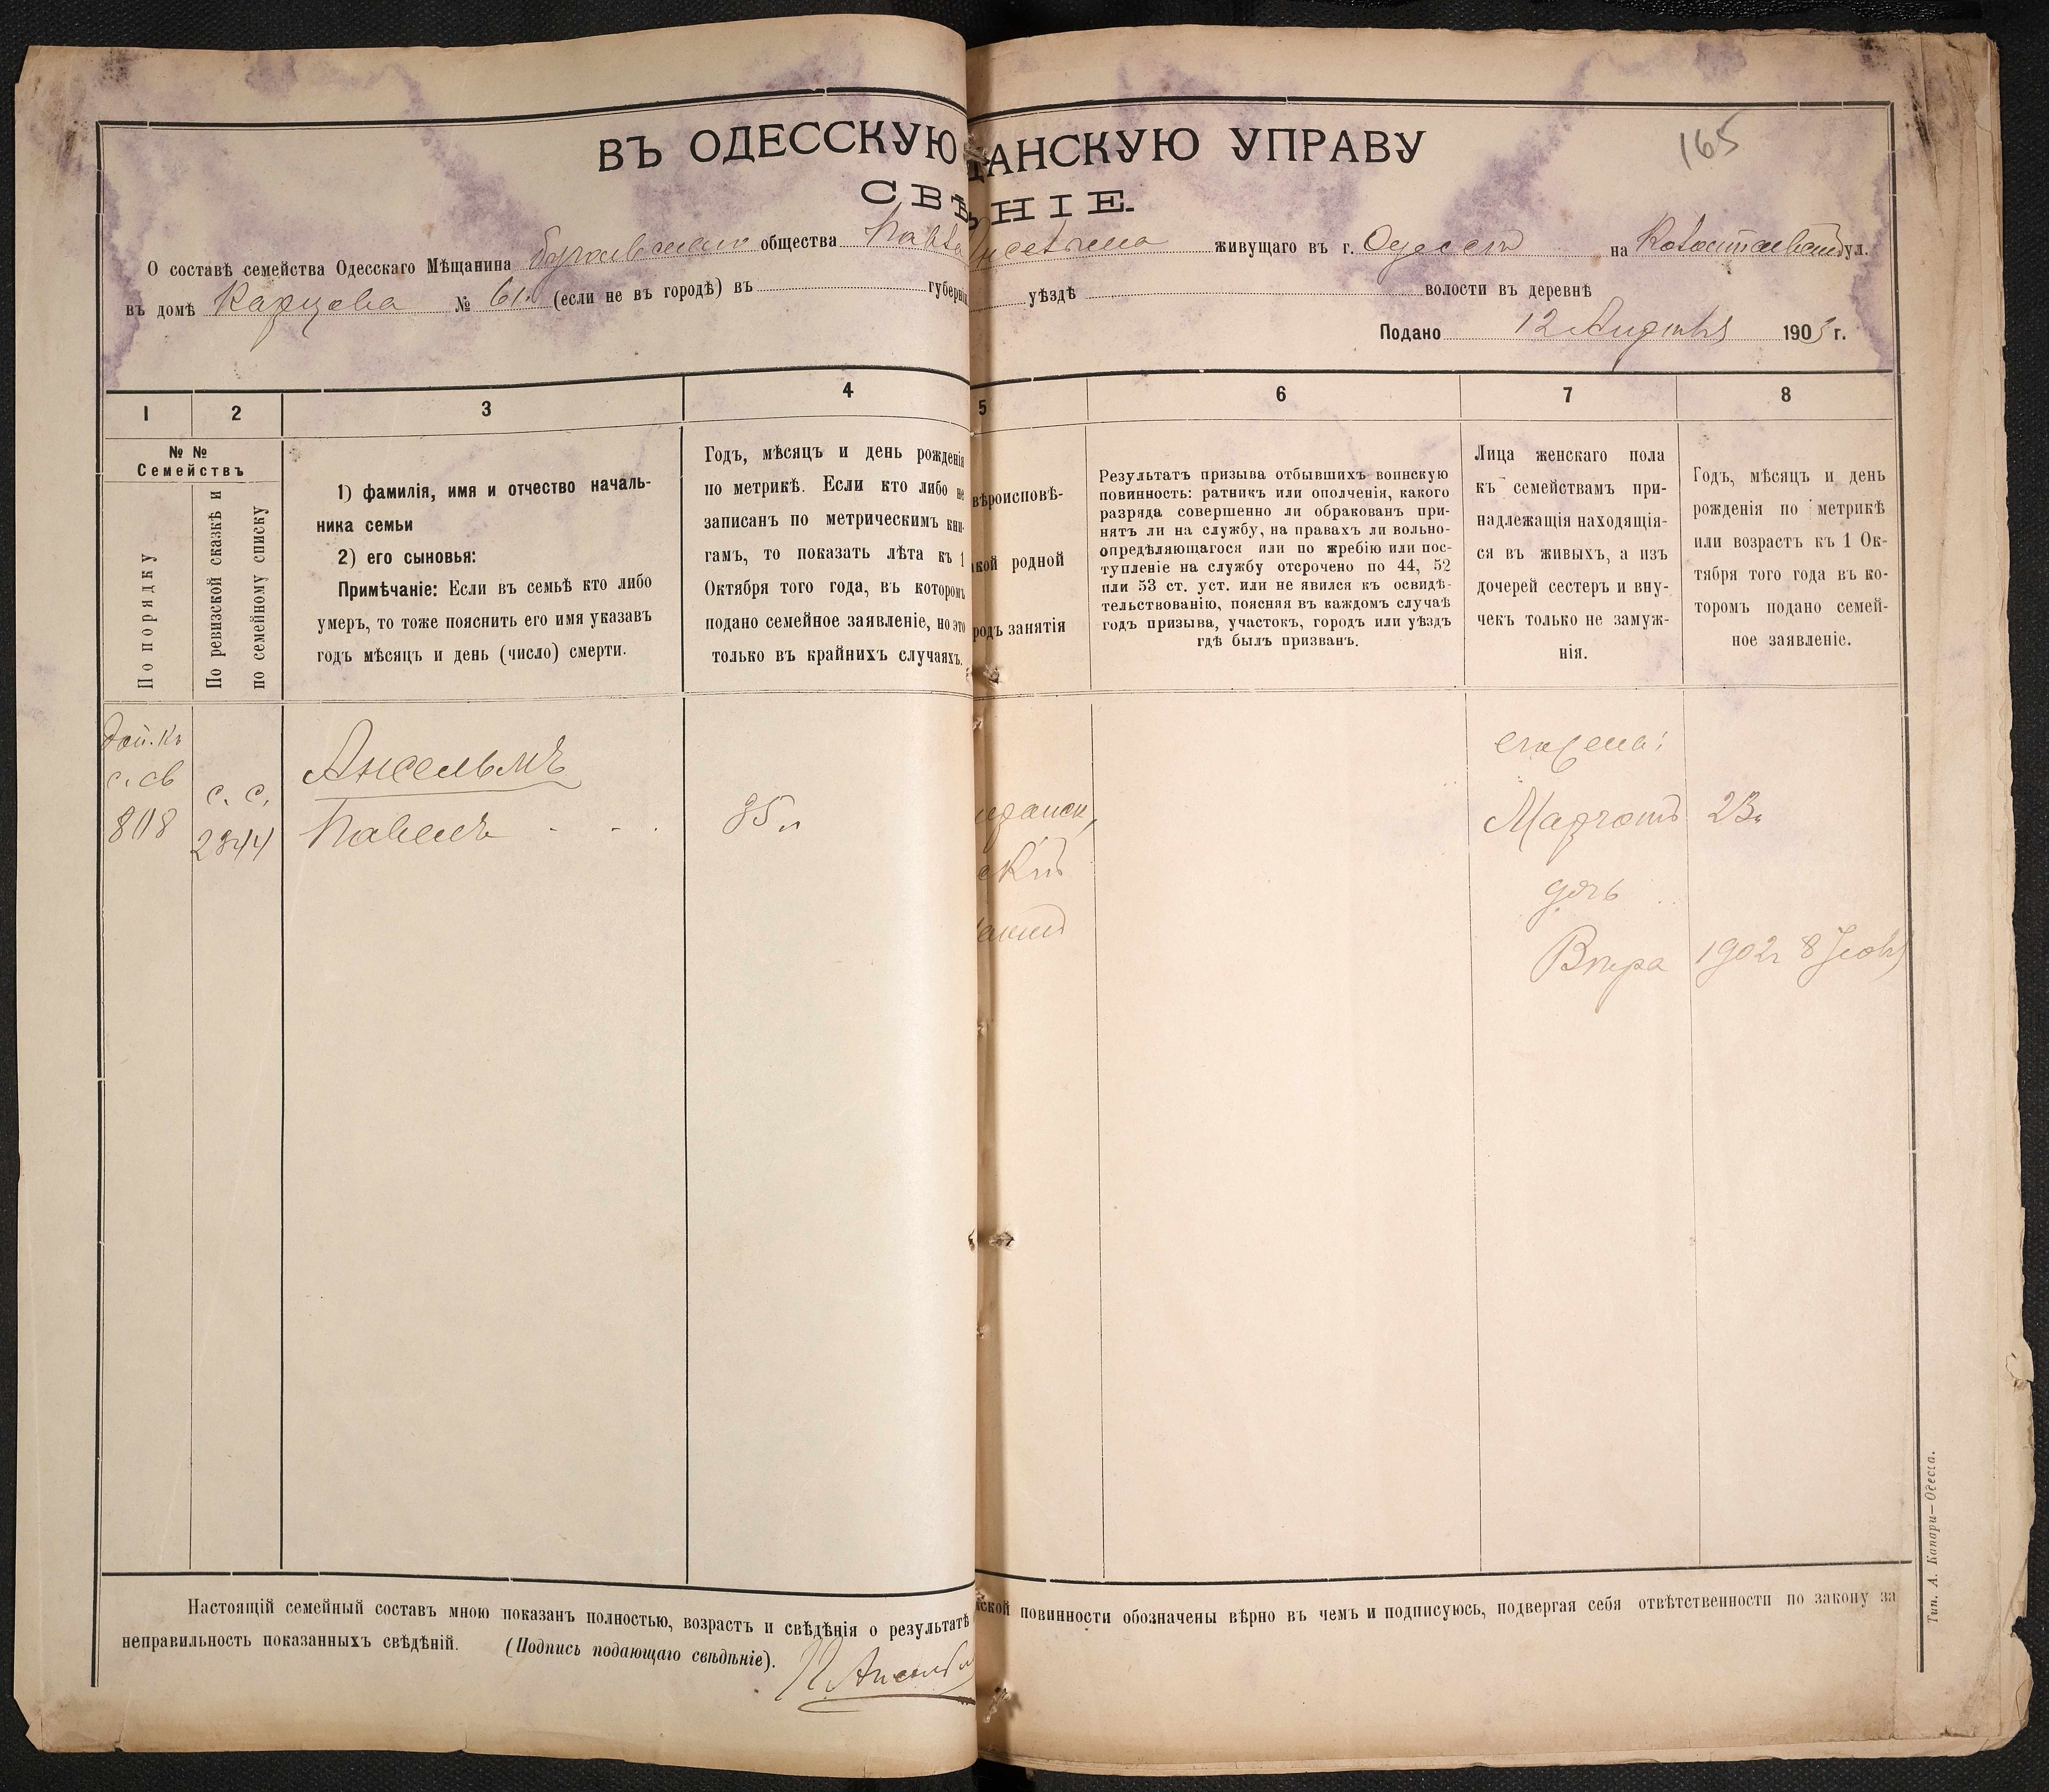 165
ВЪ ОДЕССКУЮ ЩАНСКУЮ УПРАВУ
СВѢ НІЕ.
О составѣ семейства Одесскаго Мѣщанина общества Павла Ансельма живущаго въ г. Одессѣ на ул.
въ домѣ Карцева № 61. (если не въ городѣ) въ губерніи уѣздѣ волости въ деревнѣ
Подано 12 1903 г.
1 2 3 4 5 6 7 8
№ №
Семействъ
По порядку
По ревизской сказкѣ и
по семейному списку
1) фамилія, имя и отчество началь-
ника семьи
2) его сыновья:
Примѣчаніе: Если въ семьѣ кто либо
умеръ, то тоже пояснить его имя указавъ
годъ мѣсяцъ и день (число) смерти.
Годъ, мѣсяцъ и день рожденія
по метрикѣ. Если кто либо не
записанъ по метрическимъ кни-
гамъ, то показать лѣта къ 1
Октября того года, въ которомъ
подано семейное заявленіе, но это
только въ крайнихъ случаяхъ.
вѣроисповѣ-
кой родной
родъ занятія
Результатъ призыва отбывшихъ воинскую
повинность: ратникъ или ополченія, какого
разряда совершенно ли обракованъ при-
нятъ ли на службу, на правахъ ли вольно-
опредѣляющагося или по жребію или пос-
тупленіе на службу отсрочено по 44, 52
или 53 ст. уст. или не явился къ освидѣ-
тельствованію, поясняя въ каждомъ случаѣ
годъ призыва, участокъ, городъ или уѣздъ
гдѣ былъ призванъ.
Лица женскаго пола
къ семействамъ при-
надлежащія находящія-
ся въ живыхъ, а изъ
дочерей сестеръ и вну-
чекъ только не замуж-
нія.
Годъ, мѣсяцъ и день
рожденія по метрикѣ
или возрастъ къ 1 Ок-
тября того года въ ко-
торомъ подано семей-
ное заявленіе.
с. св
808
с. с.
2844
Ансельмъ
Павелъ
35 л
скій
жена:
23
дочь
Вѣра 1902 г 8
Настоящій семейный составъ мною показанъ полностью, возрастъ и свѣдѣнія о результатѣ ской повинности обозначены вѣрно въ чемъ и подписуюсь, подвергая себя отвѣтственности по закону за
неправильность показанныхъ свѣдѣній. (Подпись подающаго свѣдѣніе). П. Ансельм
Тип. А. Копари—Одесса.